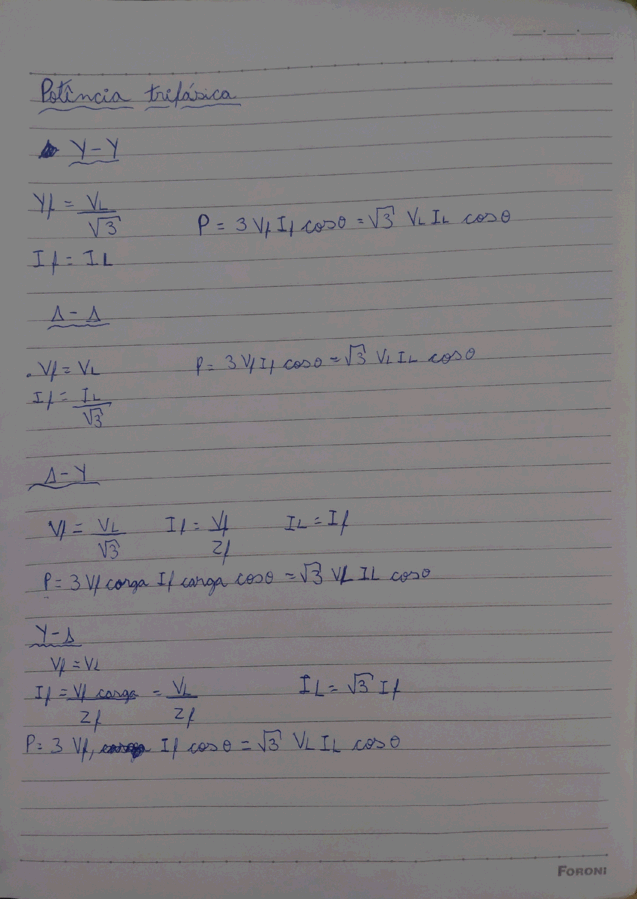 Potência trifásica
Y-Y
Vf = VL/√3
P = 3 Vf If cosθ = √3 VL IL cosθ
If = IL
Δ-Δ
Vf = VL
P = 3 Vf If cosθ = √3 VL IL cosθ
If = IL/√3
Δ-Y
Vf = VL/√3 If = Vf/Zf IL = If
P = 3 Vf carga If carga cosθ = √3 VL IL cosθ
Y-Δ
Vf = VL
If = Vf carga/Zf = VL/Zf IL = √3 If
P = 3 Vf, If cosθ = √3 VL IL cosθ
FORONI